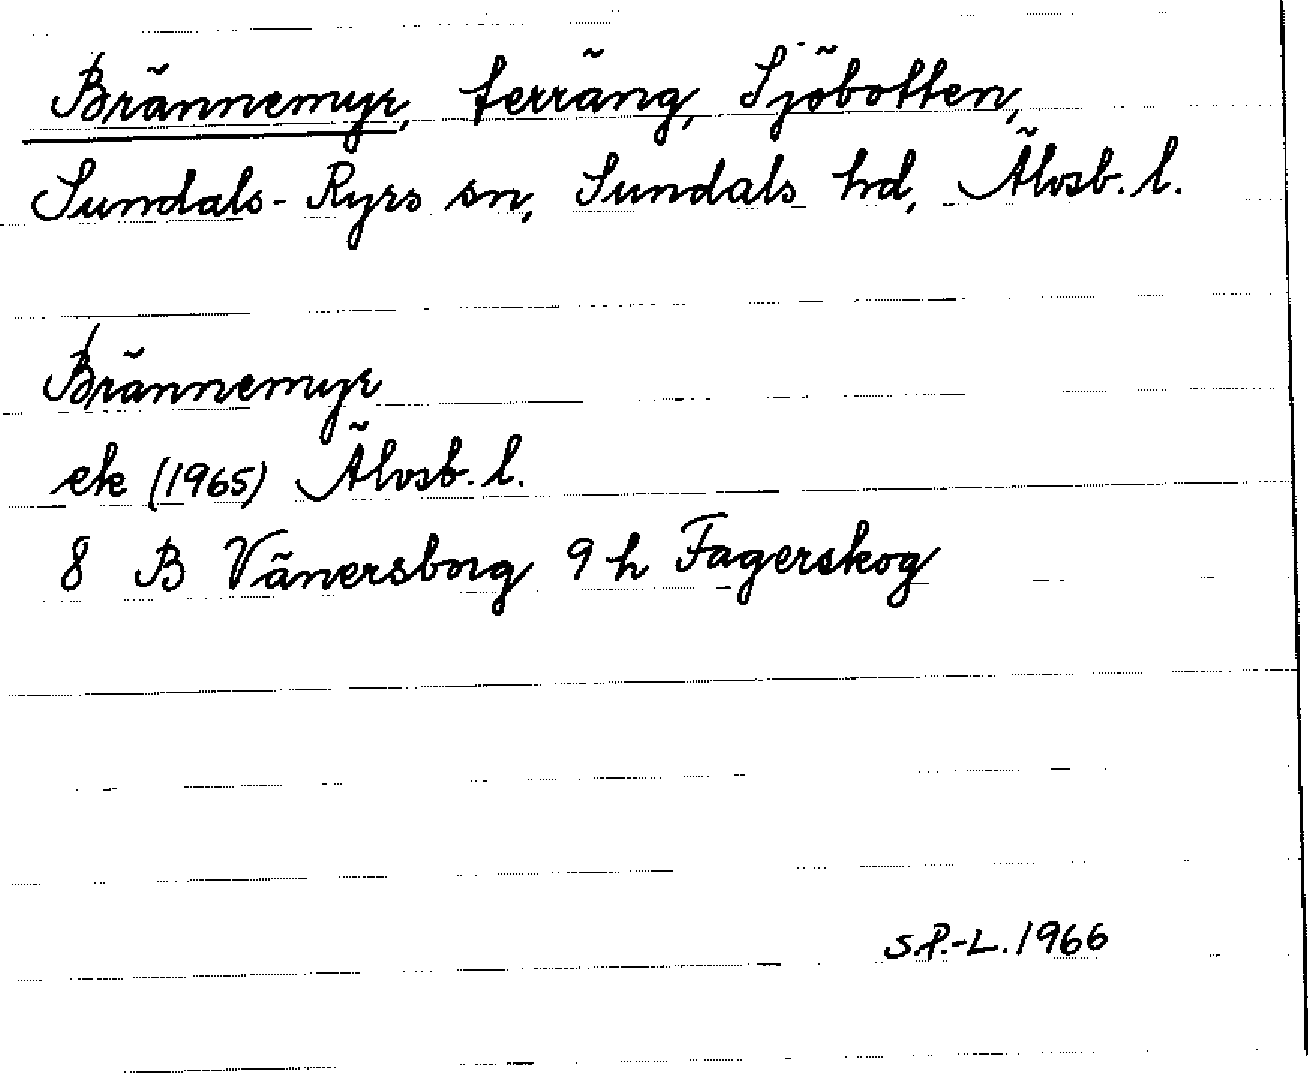 Brännemyr, terräng, Sjöbotten,
Sundals-Ryrs sn, Sundals hd, Älvsb. l.
Brännemyr
ek (1965) Älvsb. l.
8 B Vänersborg 9 h Fagerskog
S.P.-L. 1966